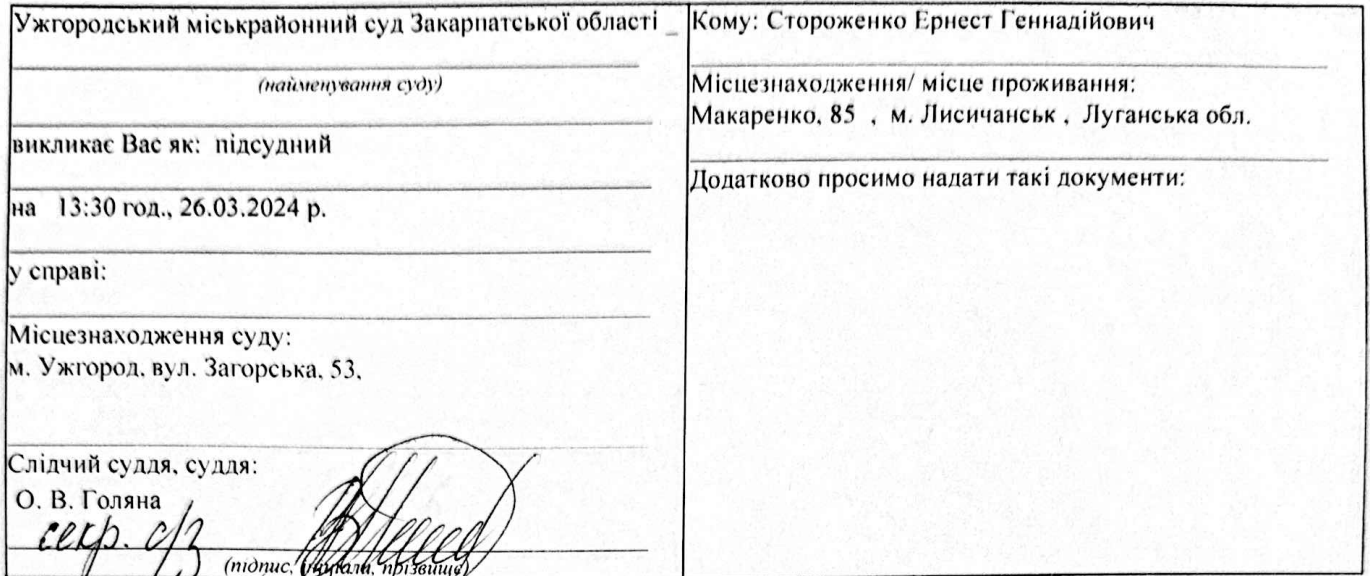 Ужгородський міськрайонний суд Закарпатської області
(найменування суду)
викликає Вас як: підсудний
на 13:30 год., 26.03.2024 р.
у справі:
Місцезнаходження суду:
м. Ужгород, вул. Загорська, 53,
Слідчий суддя, суддя:
О. В. Голяна
секр. с/з
(підпис, ініціали, прізвище)
Кому: Стороженко Ернест Геннадійович
Місцезнаходження/ місце проживання:
Макаренко, 85 , м. Лисичанськ , Луганська обл.
Додатково просимо надати такі документи: